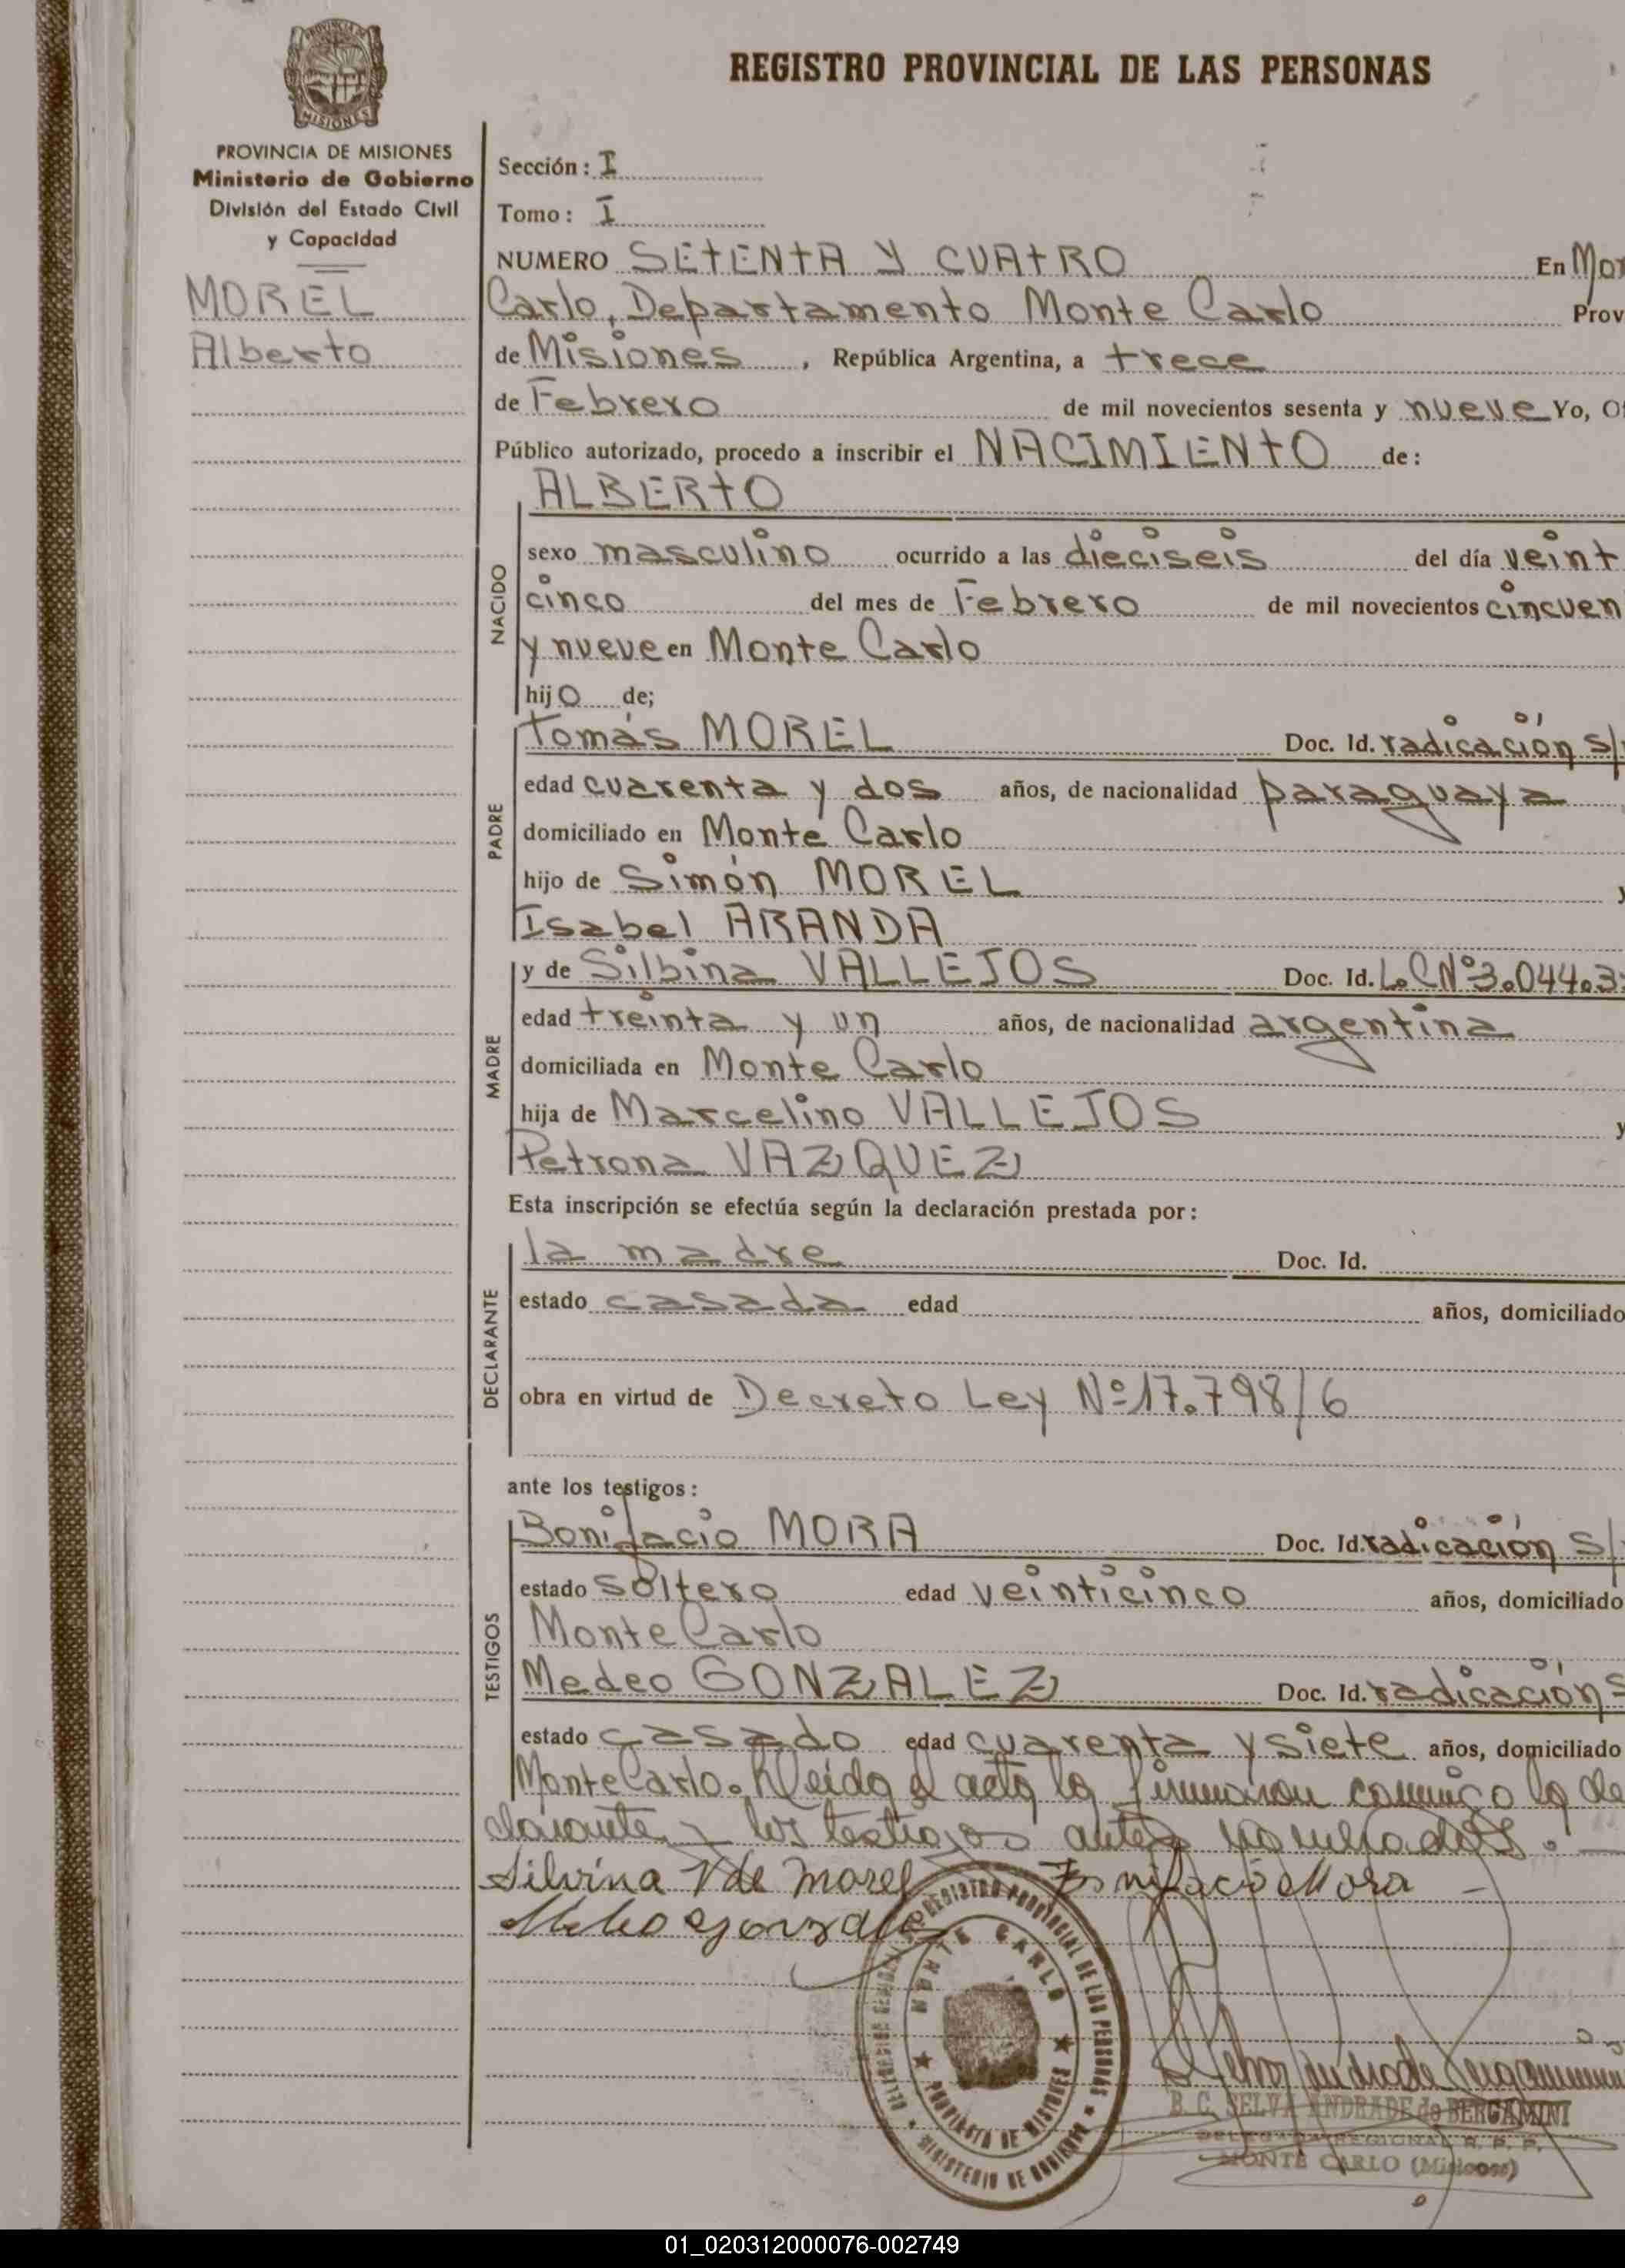 REGISTRO PROVINCIAL DE LAS PERSONAS
PROVINCIA DE MISIONES
Ministerio de Gobierno
División del Estado Civil
y Capacidad
MOREL
Alberto
Sección: I
Tomo: I
NUMERO SETENTA Y CUATRO En Mon
Carlo, Departamento Monte Carlo Prov
de Misiones, República Argentina, a trece
de Febrero de mil novecientos sesenta y nueve Yo, Of
Público autorizado, procedo a inscribir el NACIMIENTO de:
NACIDO
ALBERTO
sexo masculino ocurrido a las dieciseis del día veint
cinco del mes de Febrero de mil novecientos cincuen
y nueve en Monte Carlo
hijo de;
PADRE
Tomás MOREL Doc. Id. radicación S/
edad cuarenta y dos años, de nacionalidad paraguaya
domiciliado en Monte Carlo
hijo de Simón MOREL y
Isabel ARANDA
MADRE
y de Silbina VALLEJOS Doc. Id. L.C Nº 3.044.3
edad treinta y un años, de nacionalidad argentina
domiciliada en Monte Carlo
hija de Marcelino VALLEJOS y
Petrona VAZQUEZ
Esta inscripción se efectúa según la declaración prestada por:
DECLARANTE
la madre Doc. Id.
estado casada edad años, domiciliado
obra en virtud de Decreto Ley Nº 17.798/6
ante los testigos:
TESTIGOS
Bonifacio MORA Doc. Id. radicación S/
estado soltero edad veinticinco años, domiciliado
Monte Carlo
Medeo GONZALEZ Doc. Id. radicación S
estado casado edad cuarenta y siete años, domiciliado
Monte Carlo. Leída el acta la firmaron conmigo la de
clarante y los testigos antes nombrados.
Silvina V de Morel Bonifacio Mora
Medeo Gonzalez
REGISTRO PROVINCIAL DE LAS PERSONAS
MONTE CARLO
PROVINCIA DE MISIONES
MINISTERIO DE GOBIERNO
B. C. SELVA ANDRADE de BERGAMINI
DELEGADA REGIONAL R. P. P.
MONTE CARLO (Misiones)
01_020312000076-002749